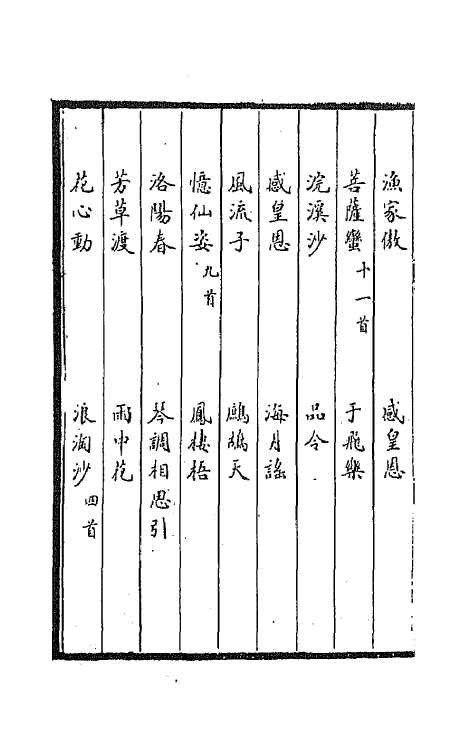 漁家傲　感皇恩
菩薩蠻十一首　于飛樂
浣溪沙　品令
感皇恩　海月謠
風流子　鷓鴣天
憶仙姿九首　鳳棲梧
洛陽春　琴調相思引
芳草渡　雨中花
花心動　浪淘沙四首